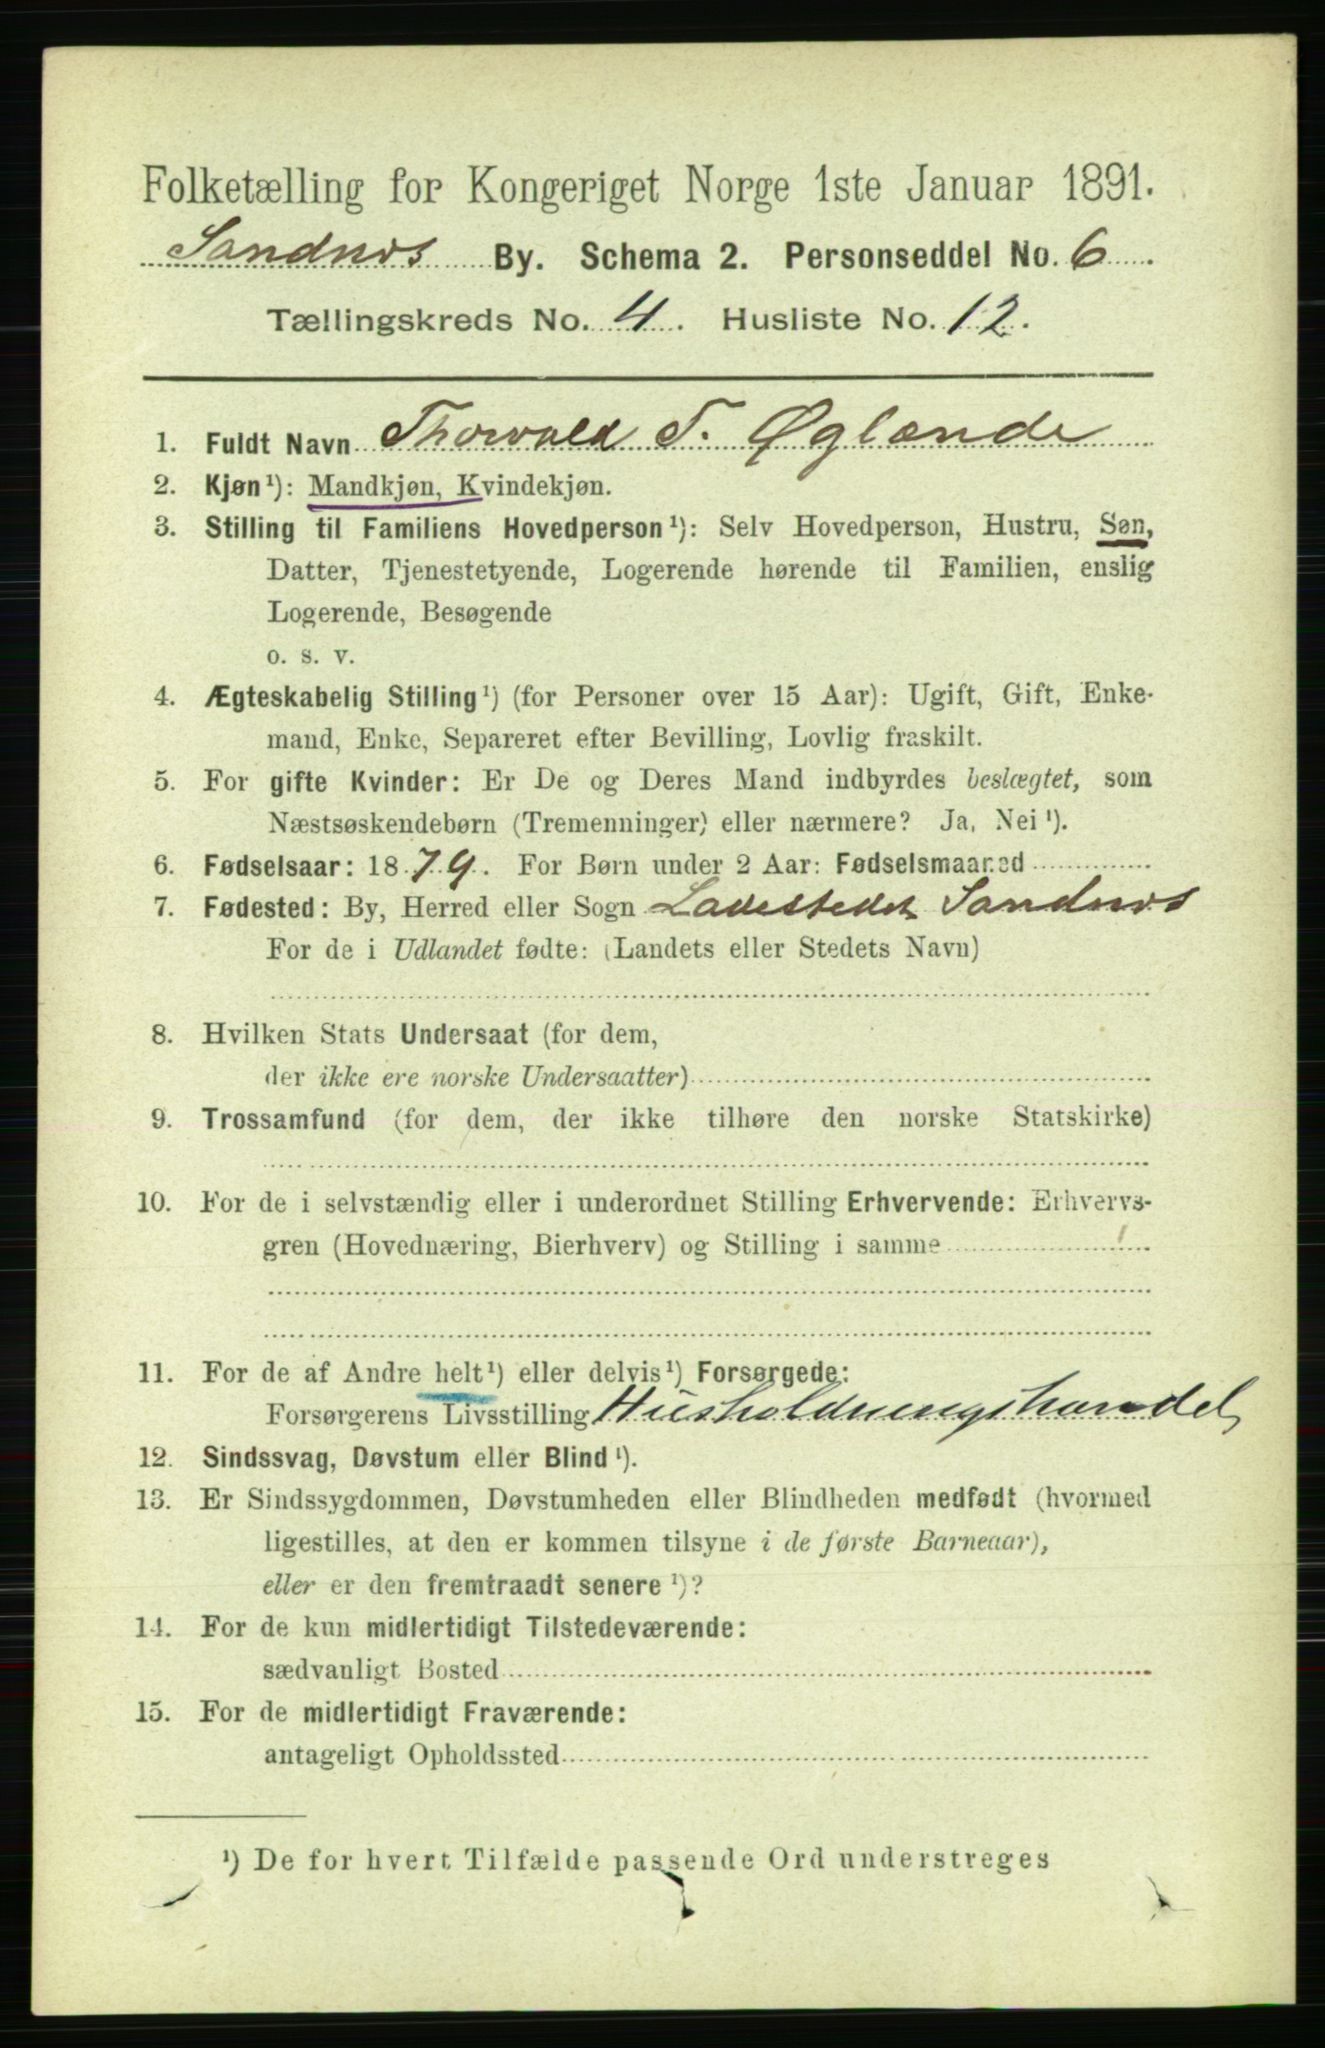 Folketælling for Kongeriget Norge 1ste Januar 1891.
Sandnes By. Schema 2. Personseddel No. 6.
Tællingskreds No. 4. Husliste No. 12.
1. Fuldt Navn Thorvald T. Øglænde
2. Kjøn¹): Mandkjøn, Kvindekjøn.
3. Stilling til Familiens Hovedperson¹): Selv Hovedperson, Hustru, Søn,
Datter, Tjenestetyende, Logerende hørende til Familien, enslig
Logerende, Besøgende
o. s. v.
4. Ægteskabelig Stilling¹) (for Personer over 15 Aar): Ugift, Gift, Enke-
mand, Enke, Separeret efter Bevilling, Lovlig fraskilt.
5. For gifte Kvinder: Er De og Deres Mand indbyrdes beslægtet, som
Næstsøskendebørn (Tremenninger) eller nærmere? Ja, Nei¹).
6. Fødselsaar: 1879. For Børn under 2 Aar: Fødselsmaaned
7. Fødested: By, Herred eller Sogn Ladestedet Sandnes
For de i Udlandet fødte: (Landets eller Stedets Navn)
8. Hvilken Stats Undersaat (for dem,
der ikke ere norske Undersaatter)
9. Trossamfund (for dem, der ikke tilhøre den norske Statskirke)
10. For de i selvstændig eller i underordnet Stilling Erhvervende: Erhvervs-
gren (Hovednæring, Bierhverv) og Stilling i samme
11. For de af Andre helt¹) eller delvis¹) Forsørgede:
Forsørgerens Livsstilling Husholdningshandel
12. Sindssvag, Døvstum eller Blind¹).
13. Er Sindssygdommen, Døvstumheden eller Blindheden medfødt (hvormed
ligestilles, at den er kommen tilsyne i de første Barneaar),
eller er den fremtraadt senere¹)?
14. For de kun midlertidigt Tilstedeværende:
sædvanligt Bosted
15. For de midlertidigt Fraværende:
antageligt Opholdssted
¹) De for hvert Tilfælde passende Ord understreges